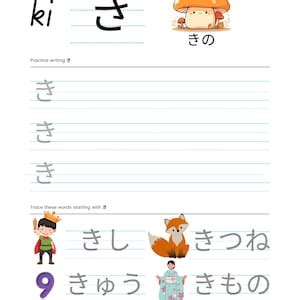 ki き
きの
Practice writing き
き
き
き
Trace these words starting with き
きし きつね
9 きゅう きもの